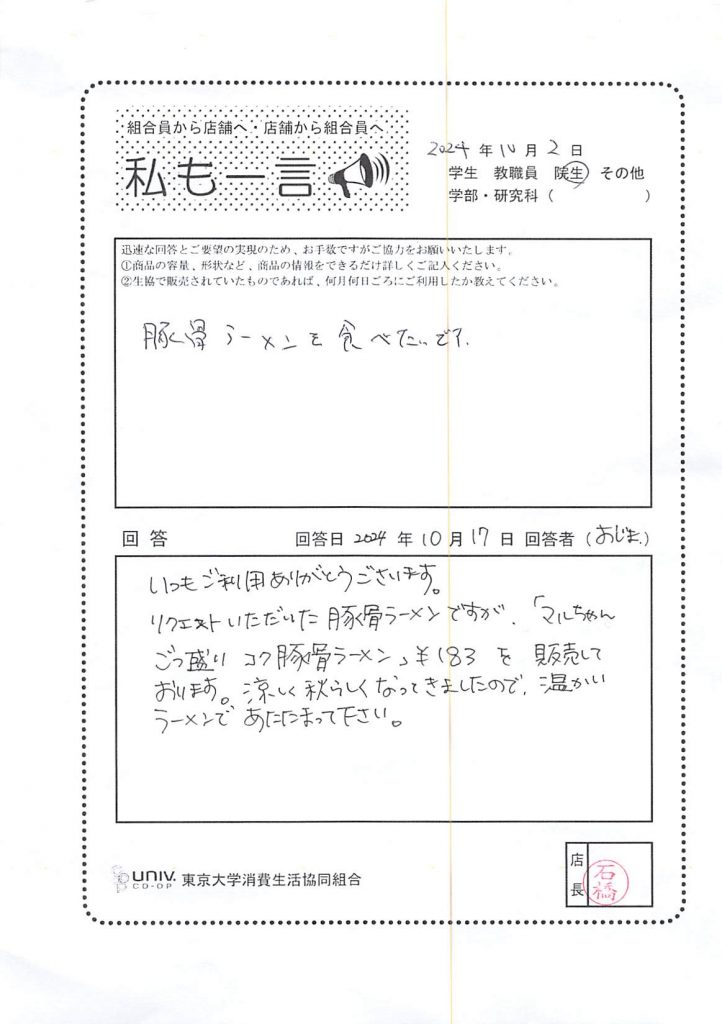 組合員から店舗へ・店舗から組合員へ
私も一言
2024年10月2日
学生 教職員 院生 その他
学部・研究科( )
迅速な回答とご要望の実現のため、お手数ですがご協力をお願いいたします。
①商品の容量、形状など、商品の情報をできるだけ詳しくご記入ください。
②生協で販売されていたものであれば、何月何日ごろにご利用したか教えてください。
豚骨ラーメンを食べたいです。
回答 回答日 2024年10月17日 回答者(おじま)
いつもご利用ありがとうございます。
リクエストいただいた豚骨ラーメンですが、「マルちゃん
ごつ盛り コク豚骨ラーメン」¥183を販売して
おります。涼しく秋らしくなってきましたので、温かい
ラーメンであたたまって下さい。
UNIV. CO-OP 東京大学消費生活協同組合
店長
石橋